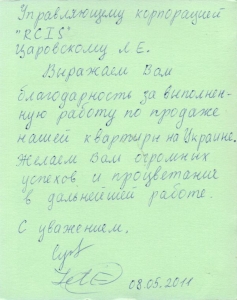 Управляющему корпорацией
"RCIS"
Царовскому Л Е.
Выражаем Вам
благодарность за выполнен-
ную работу по продаже
нашей квартиры на Украине.
Желаем Вам огромных
успехов и процветания
в дальнейшей работе.
С уважением,
08.05.2011